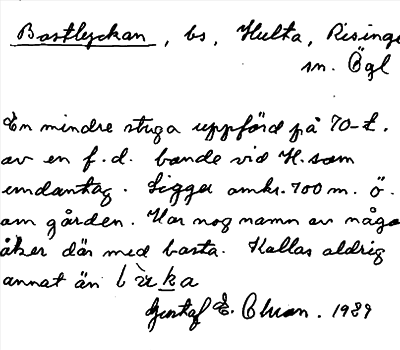 Bastlyckan, bs, Hulta, Risinge
sn. Ögl
En mindre stuga uppförd på 70-t.
av en f.d. bonde vid H. som
undantag. Ligger omkr. 700 m. ö.
om gården. Har nog namn av någo
åker där med basta. Kallas aldrig
annat än
Gustaf E. 1929